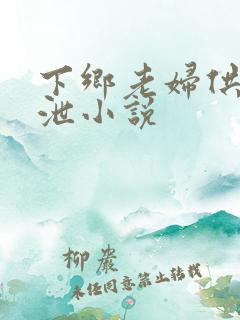 下鄉老婦供
泄小說
柳巖
未經同意禁止轉載